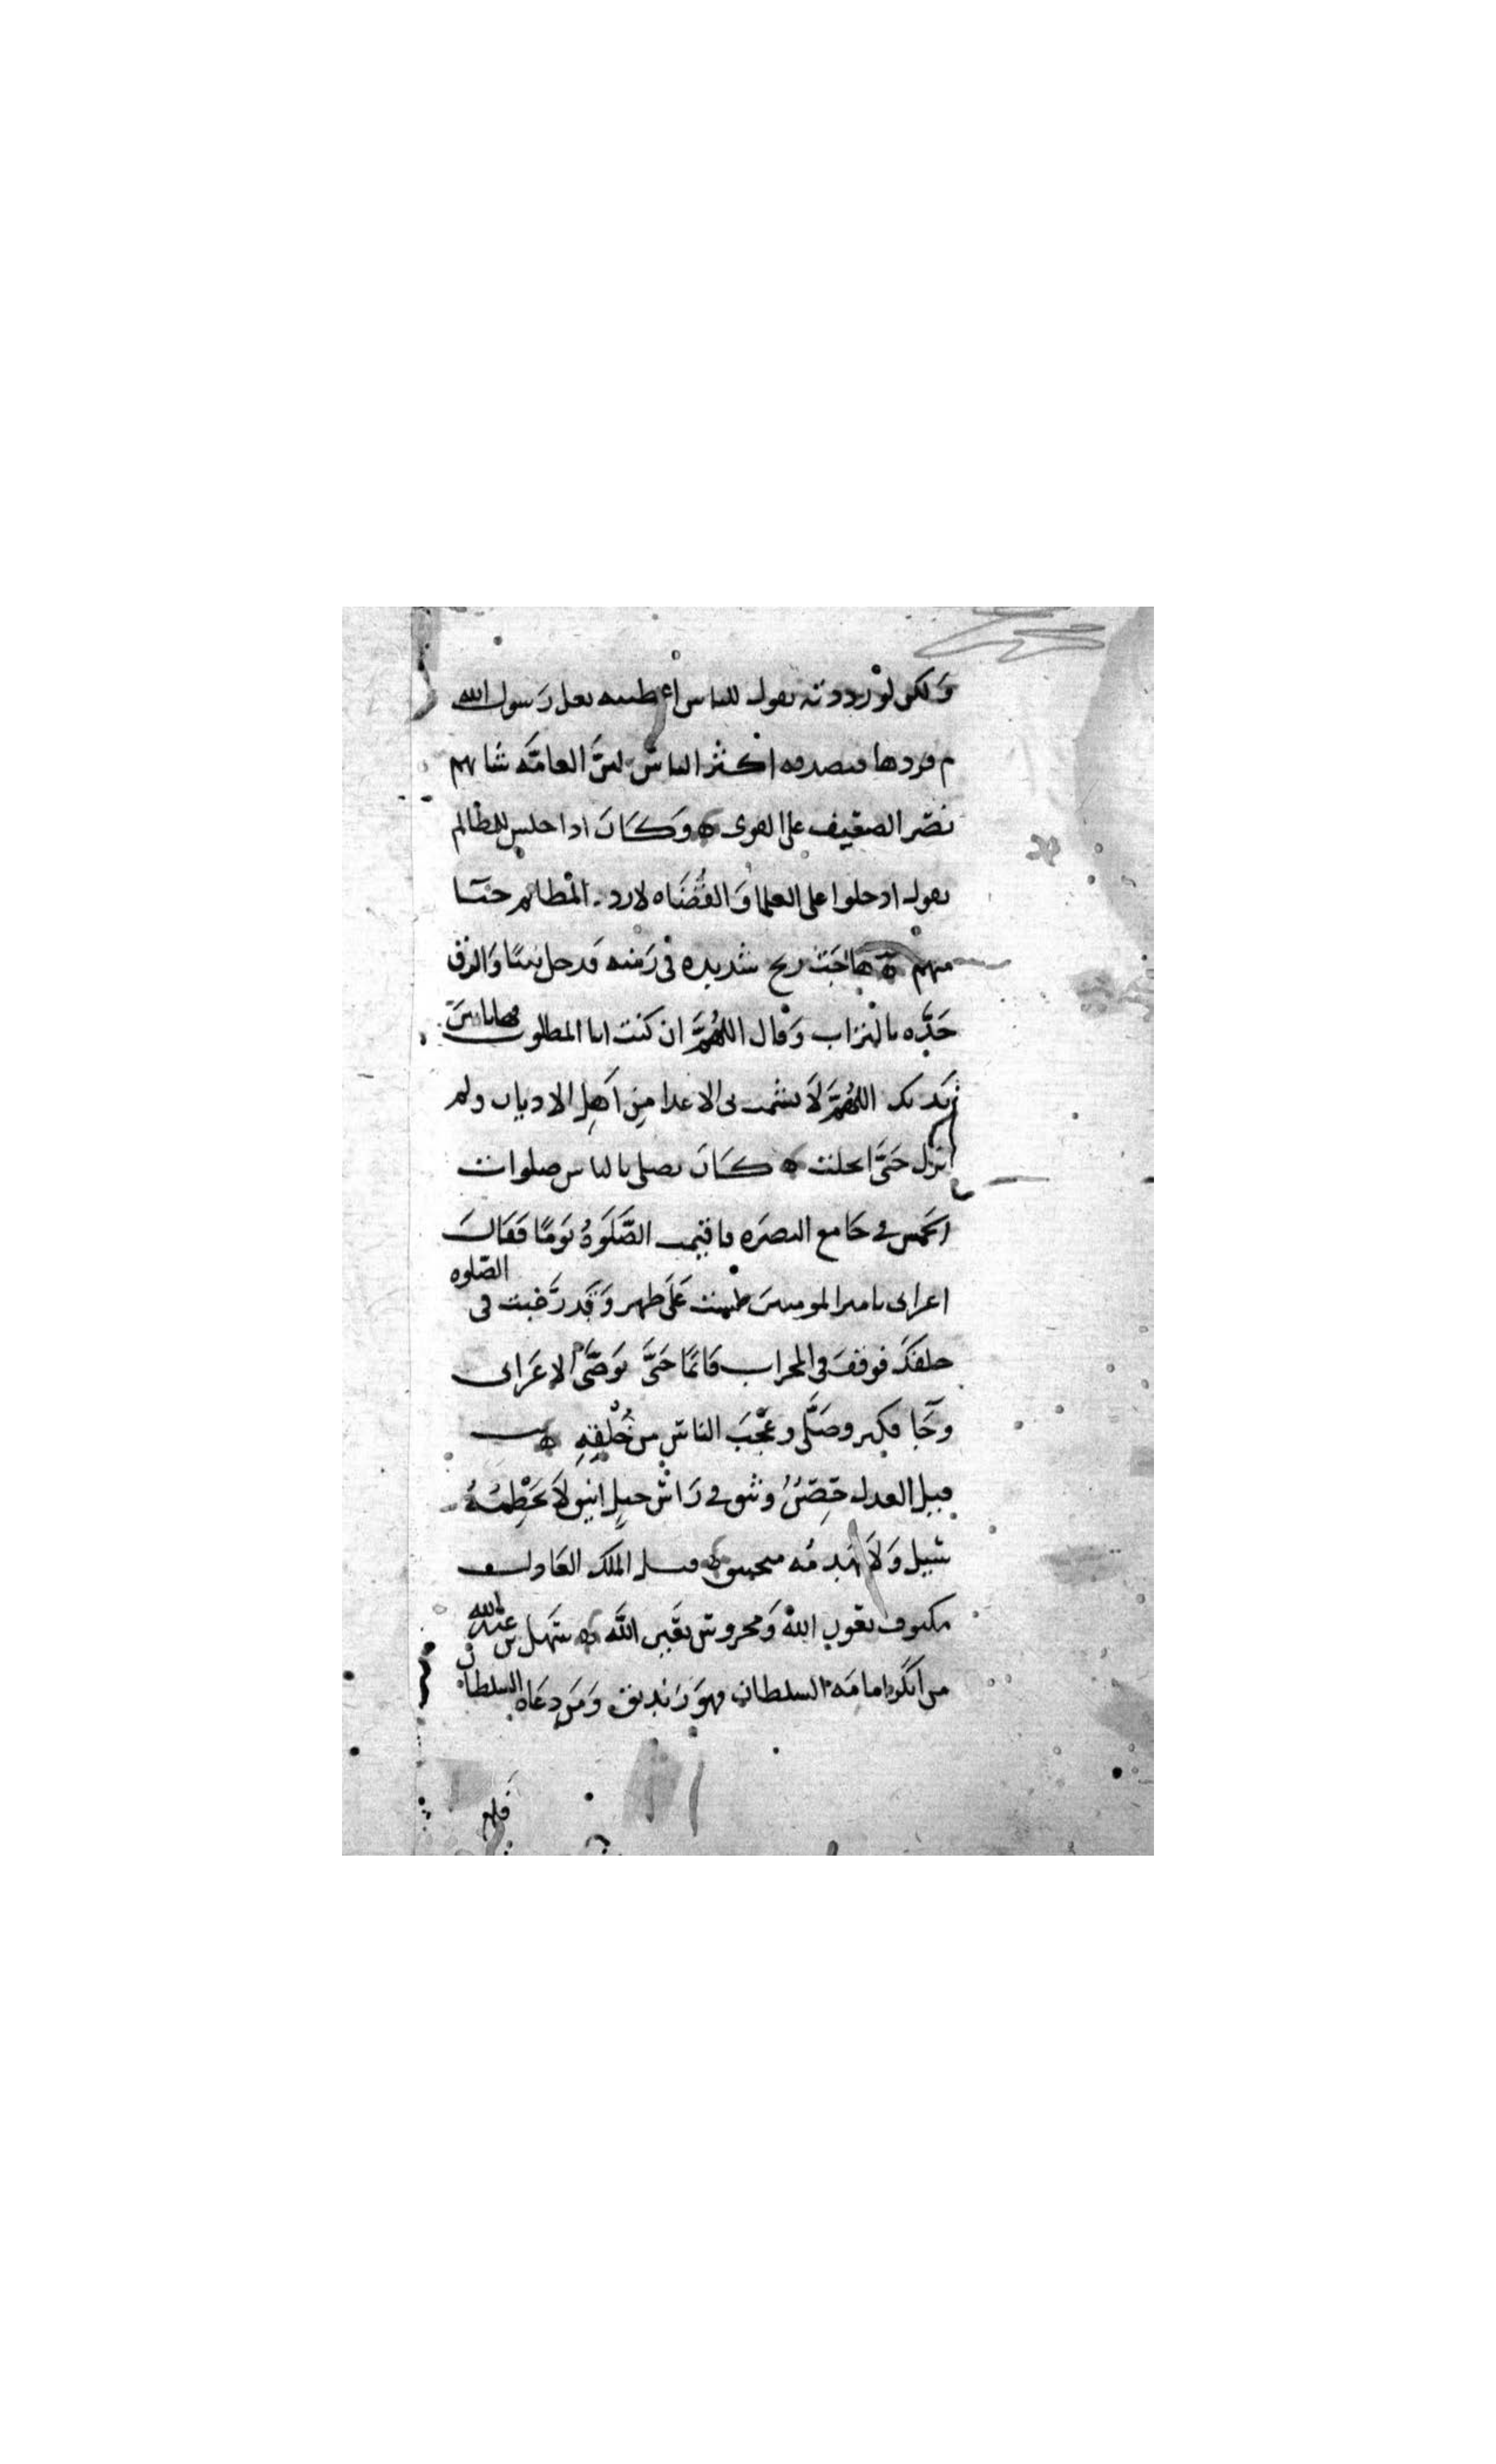 ولكن لو رددته يقول للناس اعطيته نعل رسول الله
م فردها فيصدقه اكثر الناس لئن العامّة شانهم
نصر الضعيف على القوى ه وَكَانَ اذا جلس للمظالم
يقول ادخلوا على العلما وَالقُضَاه لارد المظالم حيَآ
منهم ه هاجَت ريح شديده فى زمنه فدخل بيتًا وَالزق
خدَّه بالتراب وَقال اللهُمَّ ان كنت انا المطلوب فهانابين
يَديك اللهُمَّ لَا تشمت بى الاعدا مِن اَهلِ الاديان ولم
يزل حَتَّى انجلت ه كَانَ يصلى بالناس صلوات
الخمس فى جَامع البصرَه فاقيمت الصَّلَوةُ يَومًا فقَالَ
اعرابى يامير المومنينَ لست عَلَى طهر وَقَد رَغبت فى الصّلوه
خلفكَ فوقفَ فى المحراب قائمًا حَتَّى تَوَضَّى الاعرَابى
وجَآ فكبر وصَلَّى وعَجَبَ الناس من خُلْقِهِ ه
قيل العدل حِصن وثيق فى رَاس جبلٍ انيق لَا يَحْطِمُهُ
سَيل وَلَا يهدمُه منجنيق ه قيل الملك العَادل
مكنوف بعَون الله وَمحروس بعَين الله ه سَهل بن عبد الله
من اَنكَر امامَه السلطان فهوَ زَنديق وَمَن دعَاه السلطان
فلم